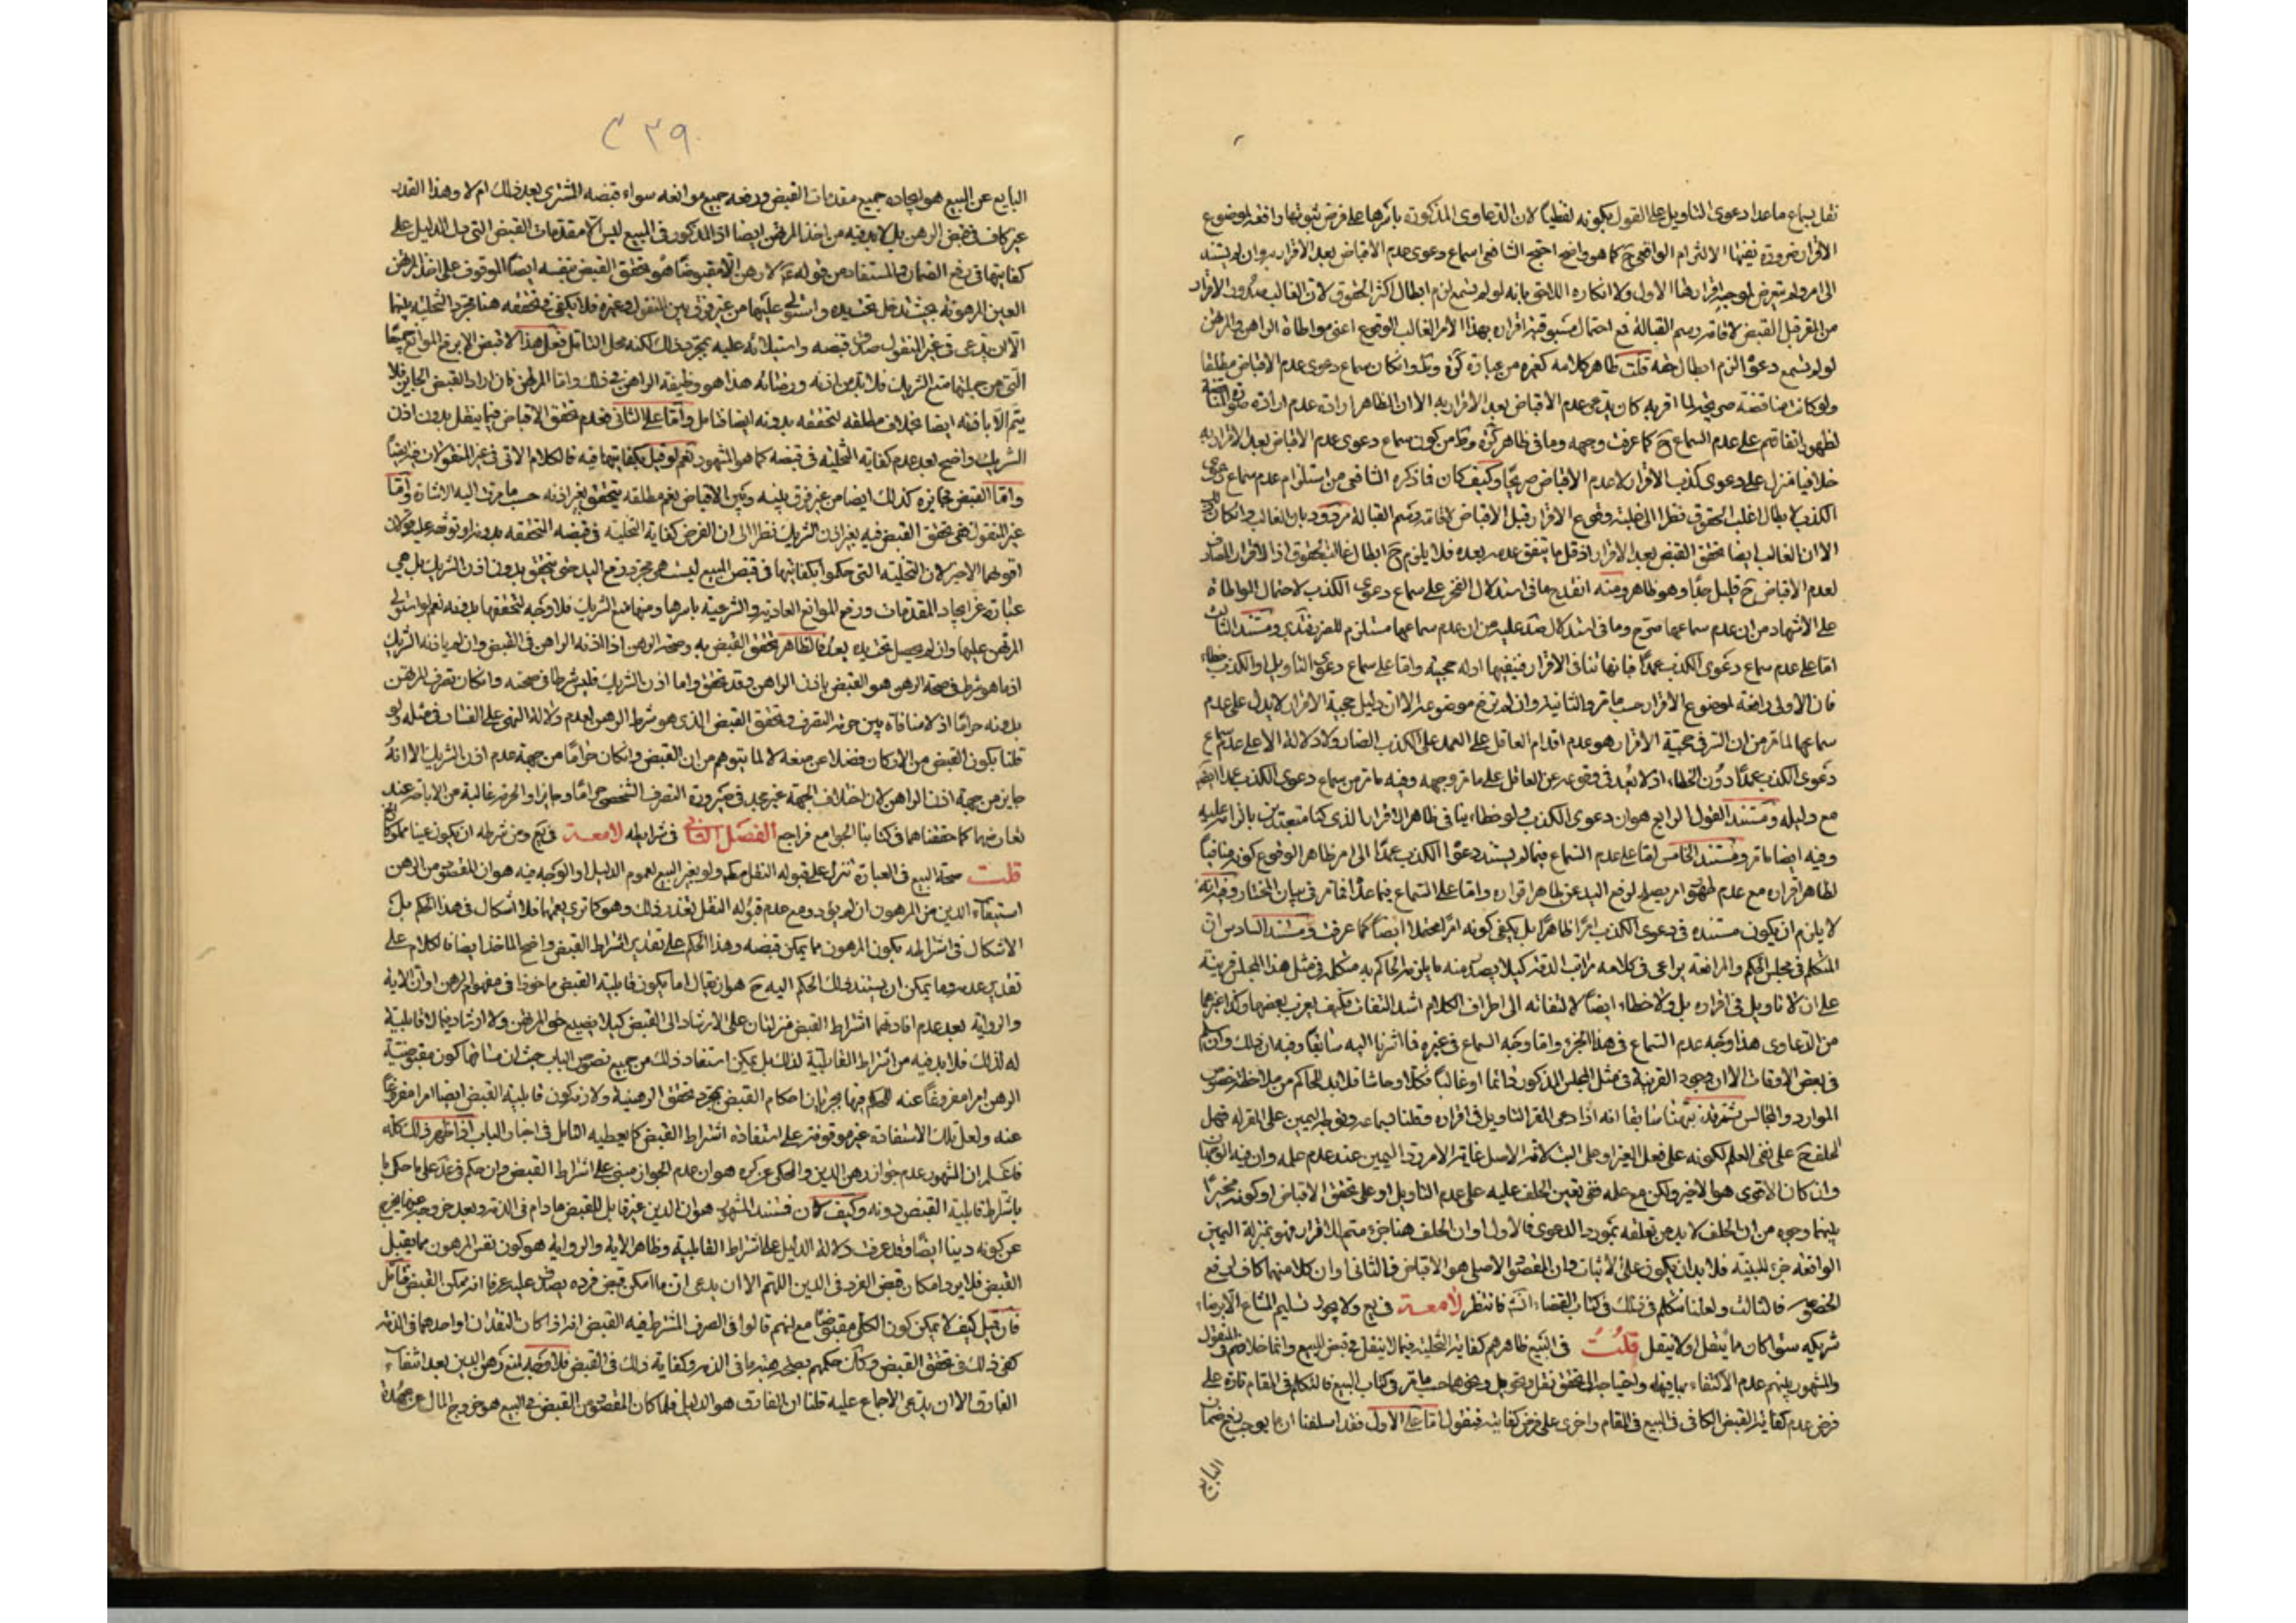 نقل بسماع ماعدا دعوى التاويل على القول بكونه لفظيا لان الدعاوى المذكورة باسرها على فرض ثبوتها دافعة لموضوع
الاقرار ضرورة نفيها الالتزام الواقعى ح كما هو واضح احتج الشافعى لسماع دعوى عدم الاقباض بعد الاقرار به وان لم يستند
الى امر ولم يتعرض لموجب اقرارهما الاول ولا انكاره اللاحق بانه لو لم يسمع لزم ابطال اكثر الحقوق لان الغالب صدور الاقرار
من المقر قبل القبض لاقامة رسم القبالة فمع احتمال مسبوقية اقراره بهذا الامر الغالب الوقوع اعنى مواطاة الراهن والمرتهن
لو لم يسمع دعواه لزم ابطال حقه قلت ظاهر كلامه كغيره من عبارة كرة وان كان سماع دعوى عدم الاقباض مطلقا
ولو كانت مناقضة صريحة لما اقر به كان يدعى عدم الاقباض بعد الاقرار به الا ان الظاهر ارادته عدم ارادة صورة المناقضة
لظهور اتفاقهم على عدم السماع ح كما عرفت وجهه وما فى ظاهر كرة من كون سماع دعوى عدم الاقباض بعد الاقرار به
خلافيا منزل على دعوى كذب الاقرار لا عدم الاقباض صريحا وكيف كان فما ذكره الشافعى من استلزام عدم سماع دعوى
الكذب لابطال اغلب الحقوق نظرا الى غلبة وقوع الاقرار قبل الاقباض لاقامة رسم القبالة مردود بان الغالب وان كان ذلك
الا ان الغالب ايضا تحقق القبض بعد الاقرار اذ قل ما يتفق عدمه بعده فلا يلزم ح ابطال غالب الحقوق اذ الاقرار المصادف
لعدم الاقباض ح قليل جدا وهو ظاهر ومنه انقدح ما فى استدلال الفخر على سماع دعوى الكذب لاحتمال المواطاة
على الاشهاد من ان عدم سماعها وما فى استدلال ضد عليه من ان عدم سماعها مستلزم للضرر فتدبر ومستند الثالث
اما على عدم سماع دعوى الكذب عمدا فانها تنافى الاقرار فينفيها ادلة حجيته واما على سماع دعوى التاويل او الكذب خطاء
فان الاولى دافعة لموضوع الاقرار حسب ما مر والثانية وان لم ترفع موضوعه الا ان دليل حجية الاقرار لا يدل على عدم
سماعها لما مر من ان السر فى حجية الاقرار هو عدم اقدام العاقل على العمد على الكذب الضار ولا دلالة الا على عدم سماع
دعوى الكذب عمدا دون الخطاء اذ لا بعد فى وقوعه من العاقل على ما مر وجهه وفيه ما مر من سماع دعوى الكذب عمدا ايضا
مع دليله ومستند القول الرابع هو ان دعوى الكذب ولو خطاء ينافى ظاهر الاقرار الذى كنا متعبدين بالزامه عليه
وفيه ايضا ما مر ومستند الخامس اما على عدم السماع فيما لم يستند دعواه الكذب عمدا الى امر ظاهر الوقوع كونه منافيا
لظاهر اقراره مع عدم ظهور امر يصلح لرفع اليد عن ظاهر اقراره واما على السماع فيما عداه فما مر فى بيان المختار وفيه انه
لا يلزم ان يكون مستنده فى دعوى الكذب امرا ظاهرا بل يكفى كونه امرا محتملا ايضا كما عرفت ومستند السادس ان
المتكلم فى مجلس الحكم والمرافعة يراعى فى كلامه مراتب الدقة كيلا يصدر منه ما يلزمه الحاكم به فتكلمه فى مثل هذا المجلس قرينة
على ان لا تاويل فى اقراره بل ولا خطاء ايضا لالتفاته الى اطراف الكلام اشد التفات فكيف يعزب بعضها وكذا غيرهما
من الدعاوى هذا وجه عدم السماع فى هذا الجزء واما وجه السماع فى غيره فما اشرنا اليه سابقا وفيه ان ذلك وان تم
فى بعض الاوقات الا ان وجود القرينة فى مثل المجلس المذكور دائما او غالبا فكلا وحاشا فلا بد للحاكم من ملاحظة خصوص
الموارد والمجالس تنبيه نبهنا سابقا انه اذا ادعى المقر التاويل فى اقراره وقلنا بسماعه وتوجه اليمين على المقر له فهل
الحلف ح على نفى العلم لكونه على فعل الغير او على البت لافتراض الاصل غاية الامر رد اليمين عند عدم علمه وان فيه الوجهان
وان كان الاقوى هو الاخير ولكن مع علمه ففى تعين الحلف عليه على عدم التاويل او على تحقق الاقباض او كونه مخيرا
بينهما وجوه من ان الحلف لا بد من تعلقه بمورد الدعوى فالاول او ان الحلف هنا جزء متمم للاقرار فهو بمنزلة اليمين
الواقعة جزء للبينة فلا بد ان يكون على الاثبات وان المقصود الاصلى هو الاقباض فالثانى او ان كلا منهما كاف لرفع
الخصومة فالثالث ولعلنا نتكلم فى ذلك فى كتاب القضاء انشاء فانتظر لامعة فى يع ولا يجوز تسليم المشاع الا برضاء
شريكه سواء كان مما ينقل او لا ينقل قلت فى البيع ظاهرهم كفاية التخلية فيما لا ينقل فى قبض المبيع وانما خلافهم فى المنقول
والمشهور بينهم عدم الاكتفاء بها فيه واحتياجه الى تحقق نقل وتحويل ونحوهما حسب ما مر فى كتاب البيع فالتكلم فى المقام تارة على
فرض عدم كفاية القبض الكافى فى البيع فى المقام واخرى على فرض كفايته فنقول اما على الاول فقد اسلفنا ان ما يوجب رفع ضمان
البايع
٢٣٩
البايع عن المبيع هو ايجاده جميع مقدمات القبض ورفعه جميع موانعه سواء قبضه المشترى بعد ذلك ام لا وهذا القدر
غير كاف فى قبض الرهن بل لا بد فيه من اخذ المرتهن ايضا اذ المذكور فى المبيع ليس الا مقدمات القبض التى دل الدليل على
كفايتها فى رفع الضمان والمستفاد من قوله ع لا رهن الا مقبوضا هو تحقق القبض بنفسه ايضا الموقوف على اخذ المرتهن
العين المرهونة بحيث تدخل تحت يده واستولى عليها من غير فرق بين المنقول وغيره فلا يكفى فى تحققه هنا مجرد التخلية بينهما
الا ان يدعى فى غير المنقول صدق قبضه واستيلائه عليه بمجرد ذلك لكنه محل التامل فعلى هذا لا قبض الا برفع الموانع جميعا
التى من جملتها منع الشريك فلا بد من اذنه ورضائه هذا هو وظيفة الراهن فى ذلك واما المرتهن فان اراد القبض الجايز فلا
يتم الا باذنه ايضا بخلاف مطلقه لتحققه بدونه ايضا فتامل واما على الثانى فعدم تحقق الاقباض فيما ينقل بدون اذن
الشريك واضح بعد عدم كفاية التخلية فى قبضه كما هو المشهور نعم لو قيل بكفايتها فيه فالكلام الاتى فى غير المنقول ات فيه ايضا
واما القبض فجايزه كذلك ايضا من غير فرق بينه وبين الاقباض نعم مطلقه يتحقق بغير اذنه حسب ما مرت اليه الاشارة واما
غير المنقول ففى تحقق القبض فيه بغير اذن الشريك نظرا الى ان الفرض كفاية التخلية فى قبضه المتحققه بدونه او توقفه عليه قولان
اقولهما الاخير لان التخلية التى حكموا بكفايتها فى قبض المبيع ليست هى مجرد رفع اليد حتى يتحقق بدون اذن الشريك بل هى
عبارة عن ايجاد المقدمات ورفع الموانع العادية والشرعية باسرها ومنها منع الشريك فلا وجه لتحققها بدونه نعم لو استولى
المرتهن عليها وان لم يحصل تخلية بعد فالظاهر تحقق القبض به وصحة الرهن اذا اذنه الراهن فى القبض وان لم ياذنه الشريك
اذ ما هو شرط فى صحة الرهن هو القبض باذن الراهن وقد تحقق واما اذن الشريك فليس شرطا فى صحته وان كان تصرف المرتهن
بدونه حراما اذ لا منافاة بين حرمة التصرف وتحقق القبض الذى هو شرط الرهن لعدم دلالة النهى على الفساد فى مثله ولو
قلنا بكون القبض من الاركان فضلا عن منعه لا لما يتوهم من ان القبض وان كان حراما من جهة عدم اذن الشريك الا انه
جايز من جهة اذن الراهن لان اختلاف الجهة غير مجد فى صيرورة التصرف الشخصى حراما وجايزا والحرمة غالبة من الاباحة عند
تعارضهما كما حققناهما فى كتابنا الجوامع فراجع الفصل الثانى فى شرايطه لامعة فى يع ومن شرطه ان يكون عينا مملوكا
قلت صحة البيع فى العبارة تنزل على قبوله النقل ولو بغير البيع لعموم الدليل او الوجه فيه هو ان المقصود من الرهن
استيفاء الدين من المرهون ان لم يؤد ومع عدم قبوله النقل تعذر ذلك وهو كما ترى يعمها فلا اشكال فى هذا الحكم بل
الاشكال فى اشراطه بكون المرهون مما يمكن قبضه وهذا الحكم على تقدير اشتراط القبض واضح الماخذ ايضا فالكلام على
تقدير عدمه وما يمكن ان يستند ذلك الحكم اليه ح هو ان يقال اما بكون قابلية القبض ماخوذا فى مفهوم الرهن او ان الاية
والرواية بعد عدم افادتهما اشتراط القبض منزلتان على الارشاد الى القبض كيلا يضيع حق المرتهن ولا ارشاد فيما لا قابلية
له لذلك فلا بد فيه من اشتراط القابلية لذلك بل يمكن استفادة ذلك من جميع نصوص الباب حيث ان مساقها كون مقبوضية
الرهن امرا مفروغا عنه فيها بجريان احكام القبض بمجرد تحقق الرهنية ولازمه كون قابلية القبض ايضا امرا مفروغا
عنه ولعل تلك الاستفادة غير موقوفة على استفادة اشتراط القبض كما يعطيه التامل فى اخبار الباب اذا ظهر ذلك كله
فاعلم ان المشهور عدم جواز رهن الدين والمحكى عن كره هو ان عدم الجواز مبنى على اشتراط القبض وان حكم فى عد على ما حكى ما
باشتراط قابلية القبض دونه وكيف كان فمستند المشهور هو ان الدين غير قابل للقبض ما دام فى الذمة وبعد خروجه عنها يخرج
عن كونه دينا ايضا وقد عرفت دلالة الدليل على اشتراط القابلية وظاهر الاية والرواية هو كون نفس المرهون مما يقبل
القبض فلا يرد امكان قبض الفرد فى الدين اللهم الا ان يدعى ان ما امكن قبض فرده يصدق عليه عرفا انه ممكن القبض فتامل
فان قيل كيف لا يمكن كون الكلى مقبوضا مع انهم قالوا فى الصرف المشترط فيه القبض انه اذا كان النقدان او احدهما فى الذمة
كفى ذلك فى تحقق القبض وكان حكمهم بصحة هبة ما فى الذمة وكفاية ذلك فى القبض فلا وجه لمنع رهن الدين بعد انتفاء
الفارق الا ان يدعى الاجماع عليه قلنا ان الفارق هو الدليل فلما كان المقصود من القبض فى البيع هو خروج المال عن عهدة